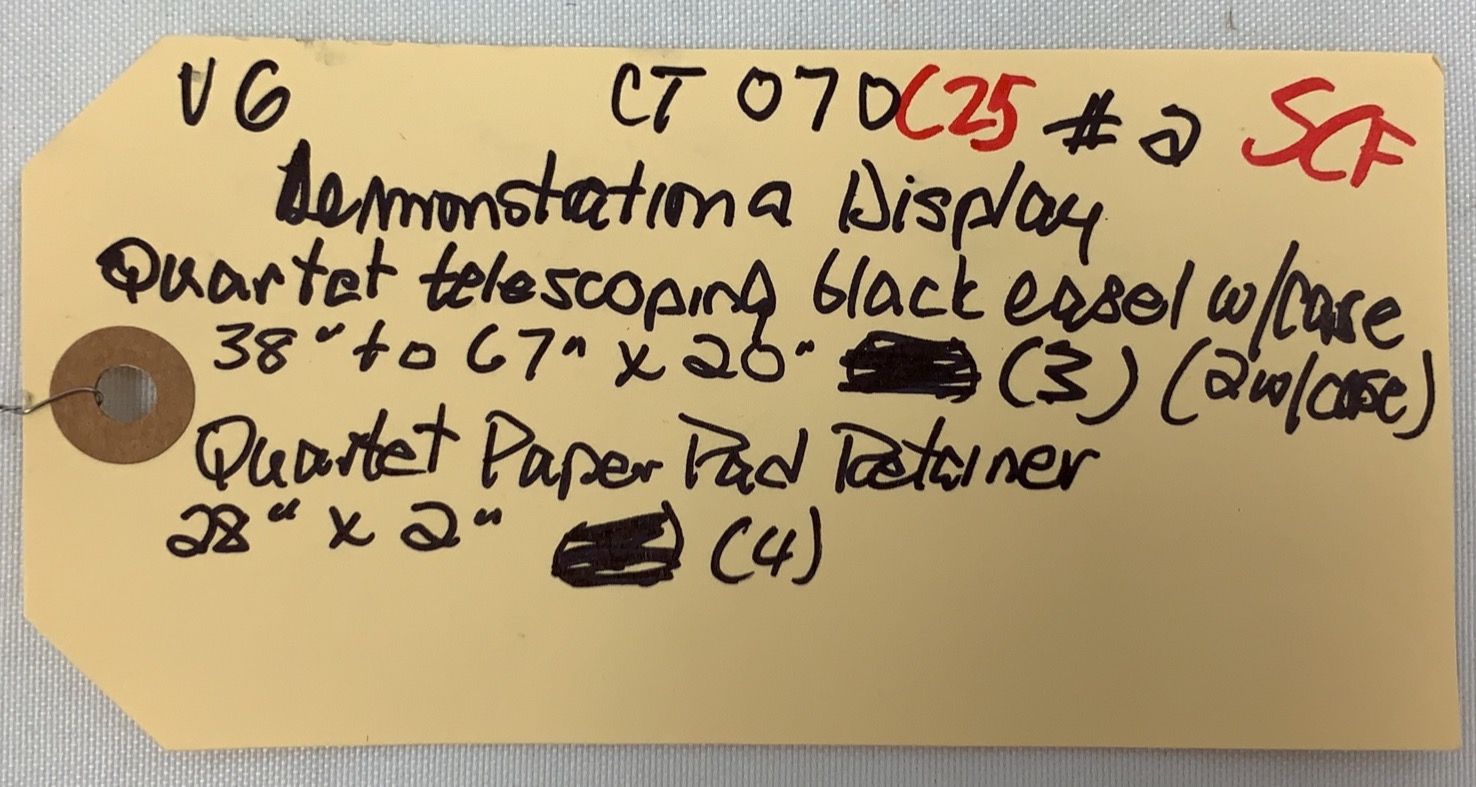 VG CT 070C25 #2 SCF
Demonstationa Display
Quartet telescoping black easel w/case
38" to 67" x 20" (3) (2 w/case)
Quartet Paper Pad Retainer
28" x 2" (4)